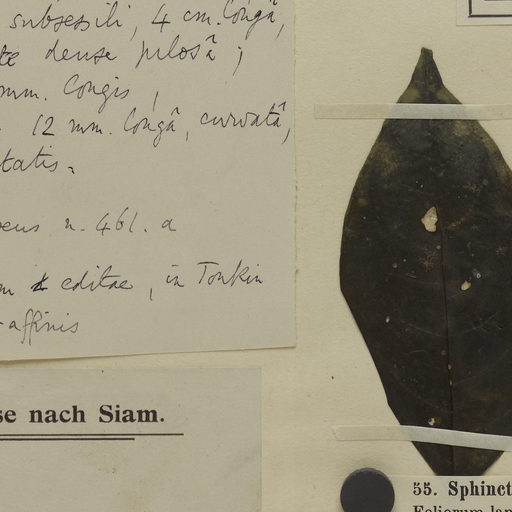 subsessili, 4 cm. longâ,
te dense pilosâ;
mm. longis,
12 mm. longâ, curvatâ,
tatis.
n. 461. a
m & editae, in Tonkin
affinis
se nach Siam.
55. Sphinct
Foliorum lam